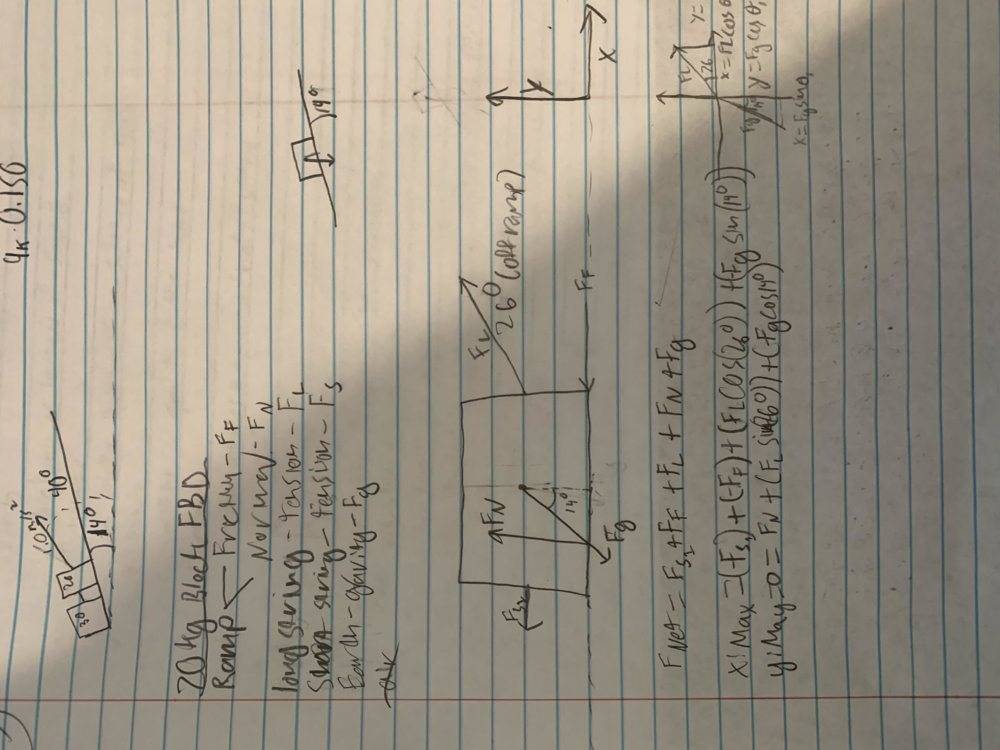 4k · 0.150
1.0 m/s²
40°
20
30
14°
20 kg Block FBD
Ramp – Friction – FF
Normal – FN
long string – tension – FL
Short string – tension – FS
Earth – gravity – Fg
14°
y
x
FL
26° (off ramp)
FN
Fs2
14°
Fg
FF
FNet = Fs2 + FF + FL + FN + Fg
x: Max = (Fs2) + (FF) + (FL cos(26°)) + (Fg sin(14°))
y: May = 0 = FN + (FL sin(26°)) + (Fg cos 14°)
FL
26
y =
x = FL cos θ
y = Fg cos θ
x = Fg sin θ